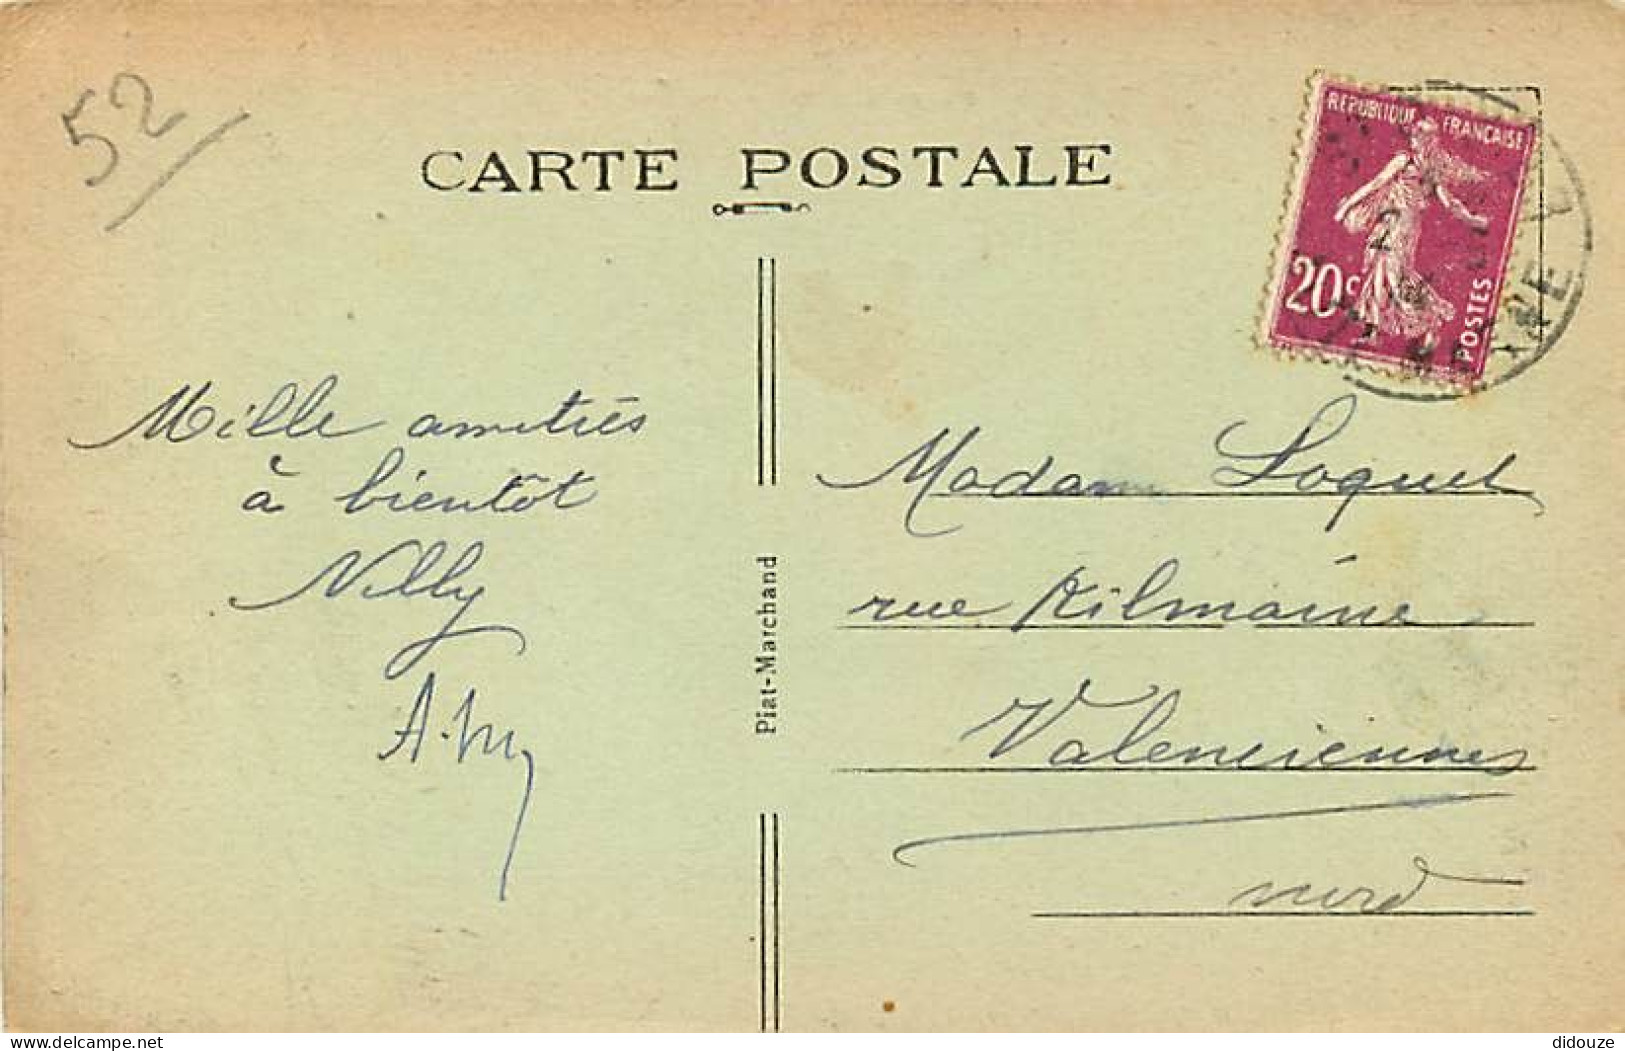 52
CARTE POSTALE
REPUBLIQUE FRANÇAISE
20c
POSTES
Mille amitiés
à bientôt
Nelly
Piat-Marchand
Madame Loquet
rue Kilmaine
Valenciennes
nord
www.delcampe.net
didouze